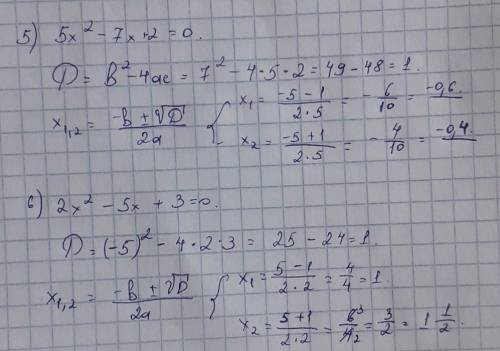 5) 5x² - 7x + 2 = 0.
D = b² - 4ac = 7² - 4·5·2 = 49 - 48 = 1.
x₁,₂ = (-b ± √D)/2a { x₁ = (-5 - 1)/(2·5) = -6/10 = -0,6.
x₂ = (-5 + 1)/(2·5) = -4/10 = -0,4.
6) 2x² - 5x + 3 = 0.
D = (-5)² - 4·2·3 = 25 - 24 = 1.
x₁,₂ = (-b ± √D)/2a { x₁ = (5 - 1)/(2·2) = 4/4 = 1.
x₂ = (5 + 1)/(2·2) = 6³/4₂ = 3/2 = 1 1/2.